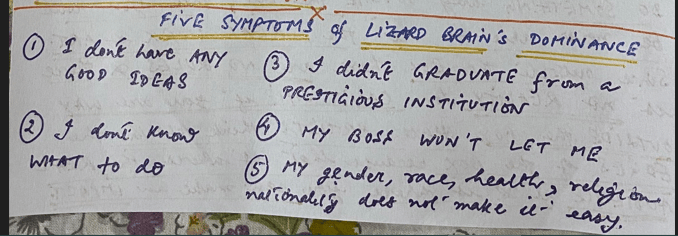 FIVE SYMPTOMS of LIZARD BRAIN'S DOMINANCE
① I don't have ANY
GOOD IDEAS
② I don't know
WHAT to do
③ I didn't GRADUATE from a
PRESTIGIOUS INSTITUTION
④ MY BOSS WON'T LET ME
⑤ MY gender, race, health, religion
nationality does not make it easy.